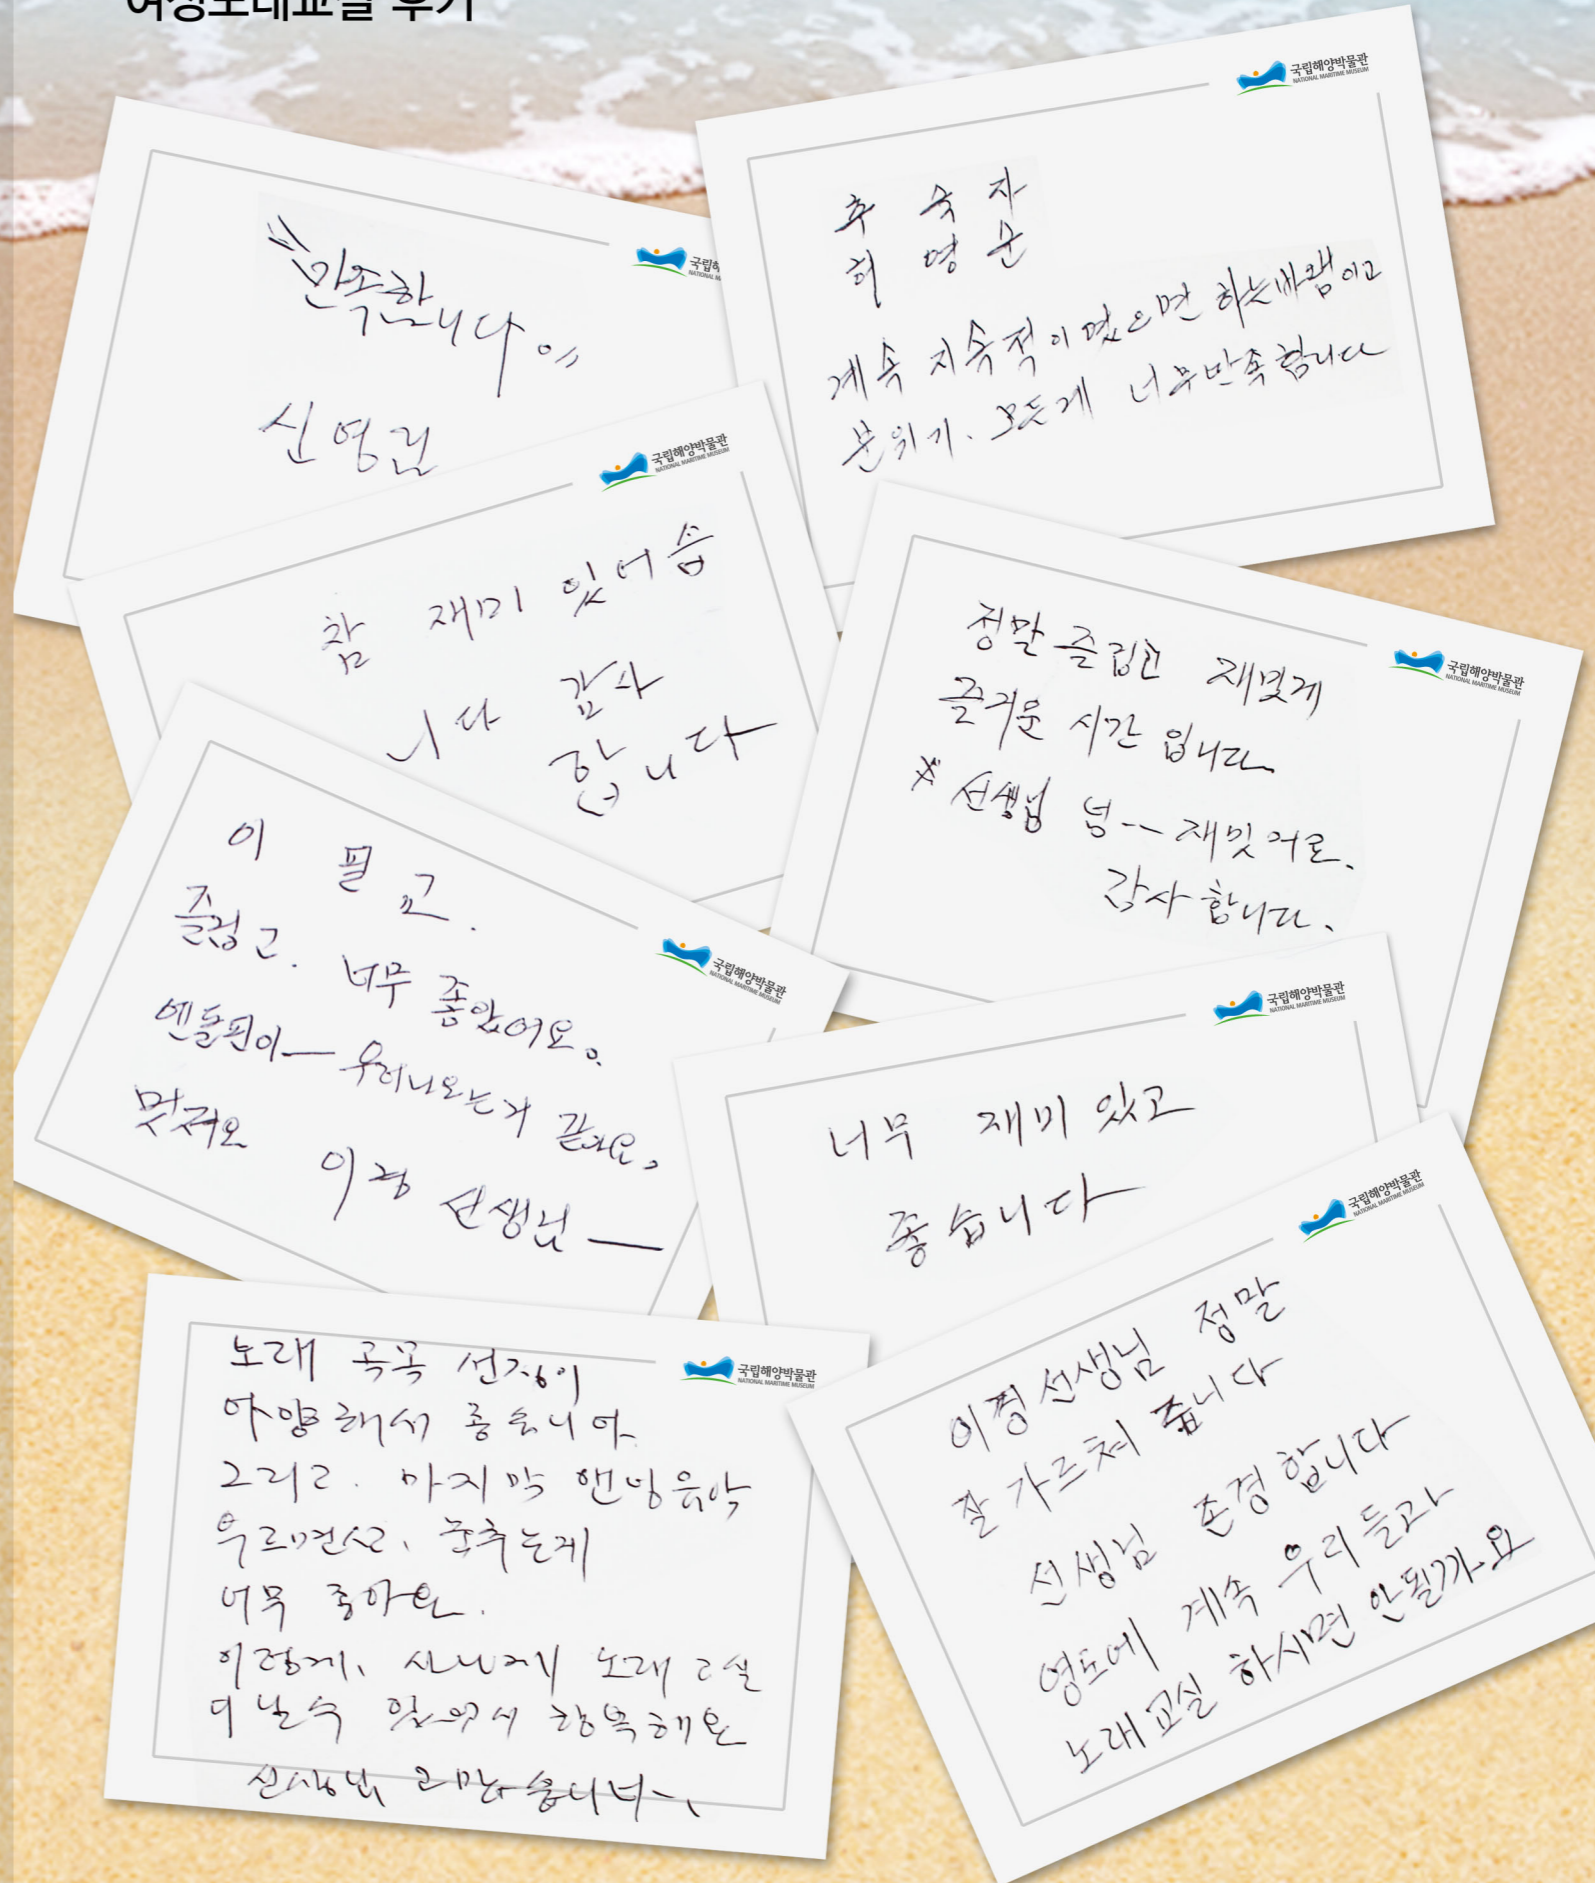 여성노래교실 후기
국립해양박물관
NATIONAL MARITIME MUSEUM
"만족합니다."
신영길
국립해
NATIONAL M
추 숙 자
허 영 순
계속 지속적이였으면 하는바램이고
분위기. 모든게 너무만족합니다
국립해양박물관
NATIONAL MARITIME MUSEUM
참 재미 있어습
니다 감사
합니다
국립해양박물관
NATIONAL MARITIME MUSEUM
정말 즐겁고 재밌게
즐거운 시간 입니다.
※ 선생님 넘-- 재밋어요.
감사합니다.
국립해양박물관
NATIONAL MARITIME MUSEUM
이 필 교.
즐겁고. 너무 좋았어요.
엔돌핀이— 우러나오는거 같아요.
멋져요 이정 선생님 —
국립해양박물관
NATIONAL MARITIME MUSEUM
너무 재미 있고
좋습니다
국립해양박물관
NATIONAL MARITIME MUSEUM
노래 곡목 선정이
다양해서 좋습니다.
그리고. 마지막 엔딩음악
부르면서. 춤추는게
너무 좋아요.
이렇게. 신나게 노래교실
다닐수 있어서 행복해요
선생님 고맙습니다.
국립해양박물관
NATIONAL MARITIME MUSEUM
이정선생님 정말
잘 가르쳐 줍니다
선생님 존경 합니다
영도에 계속 우리들과
노래교실 하시면 안될까요